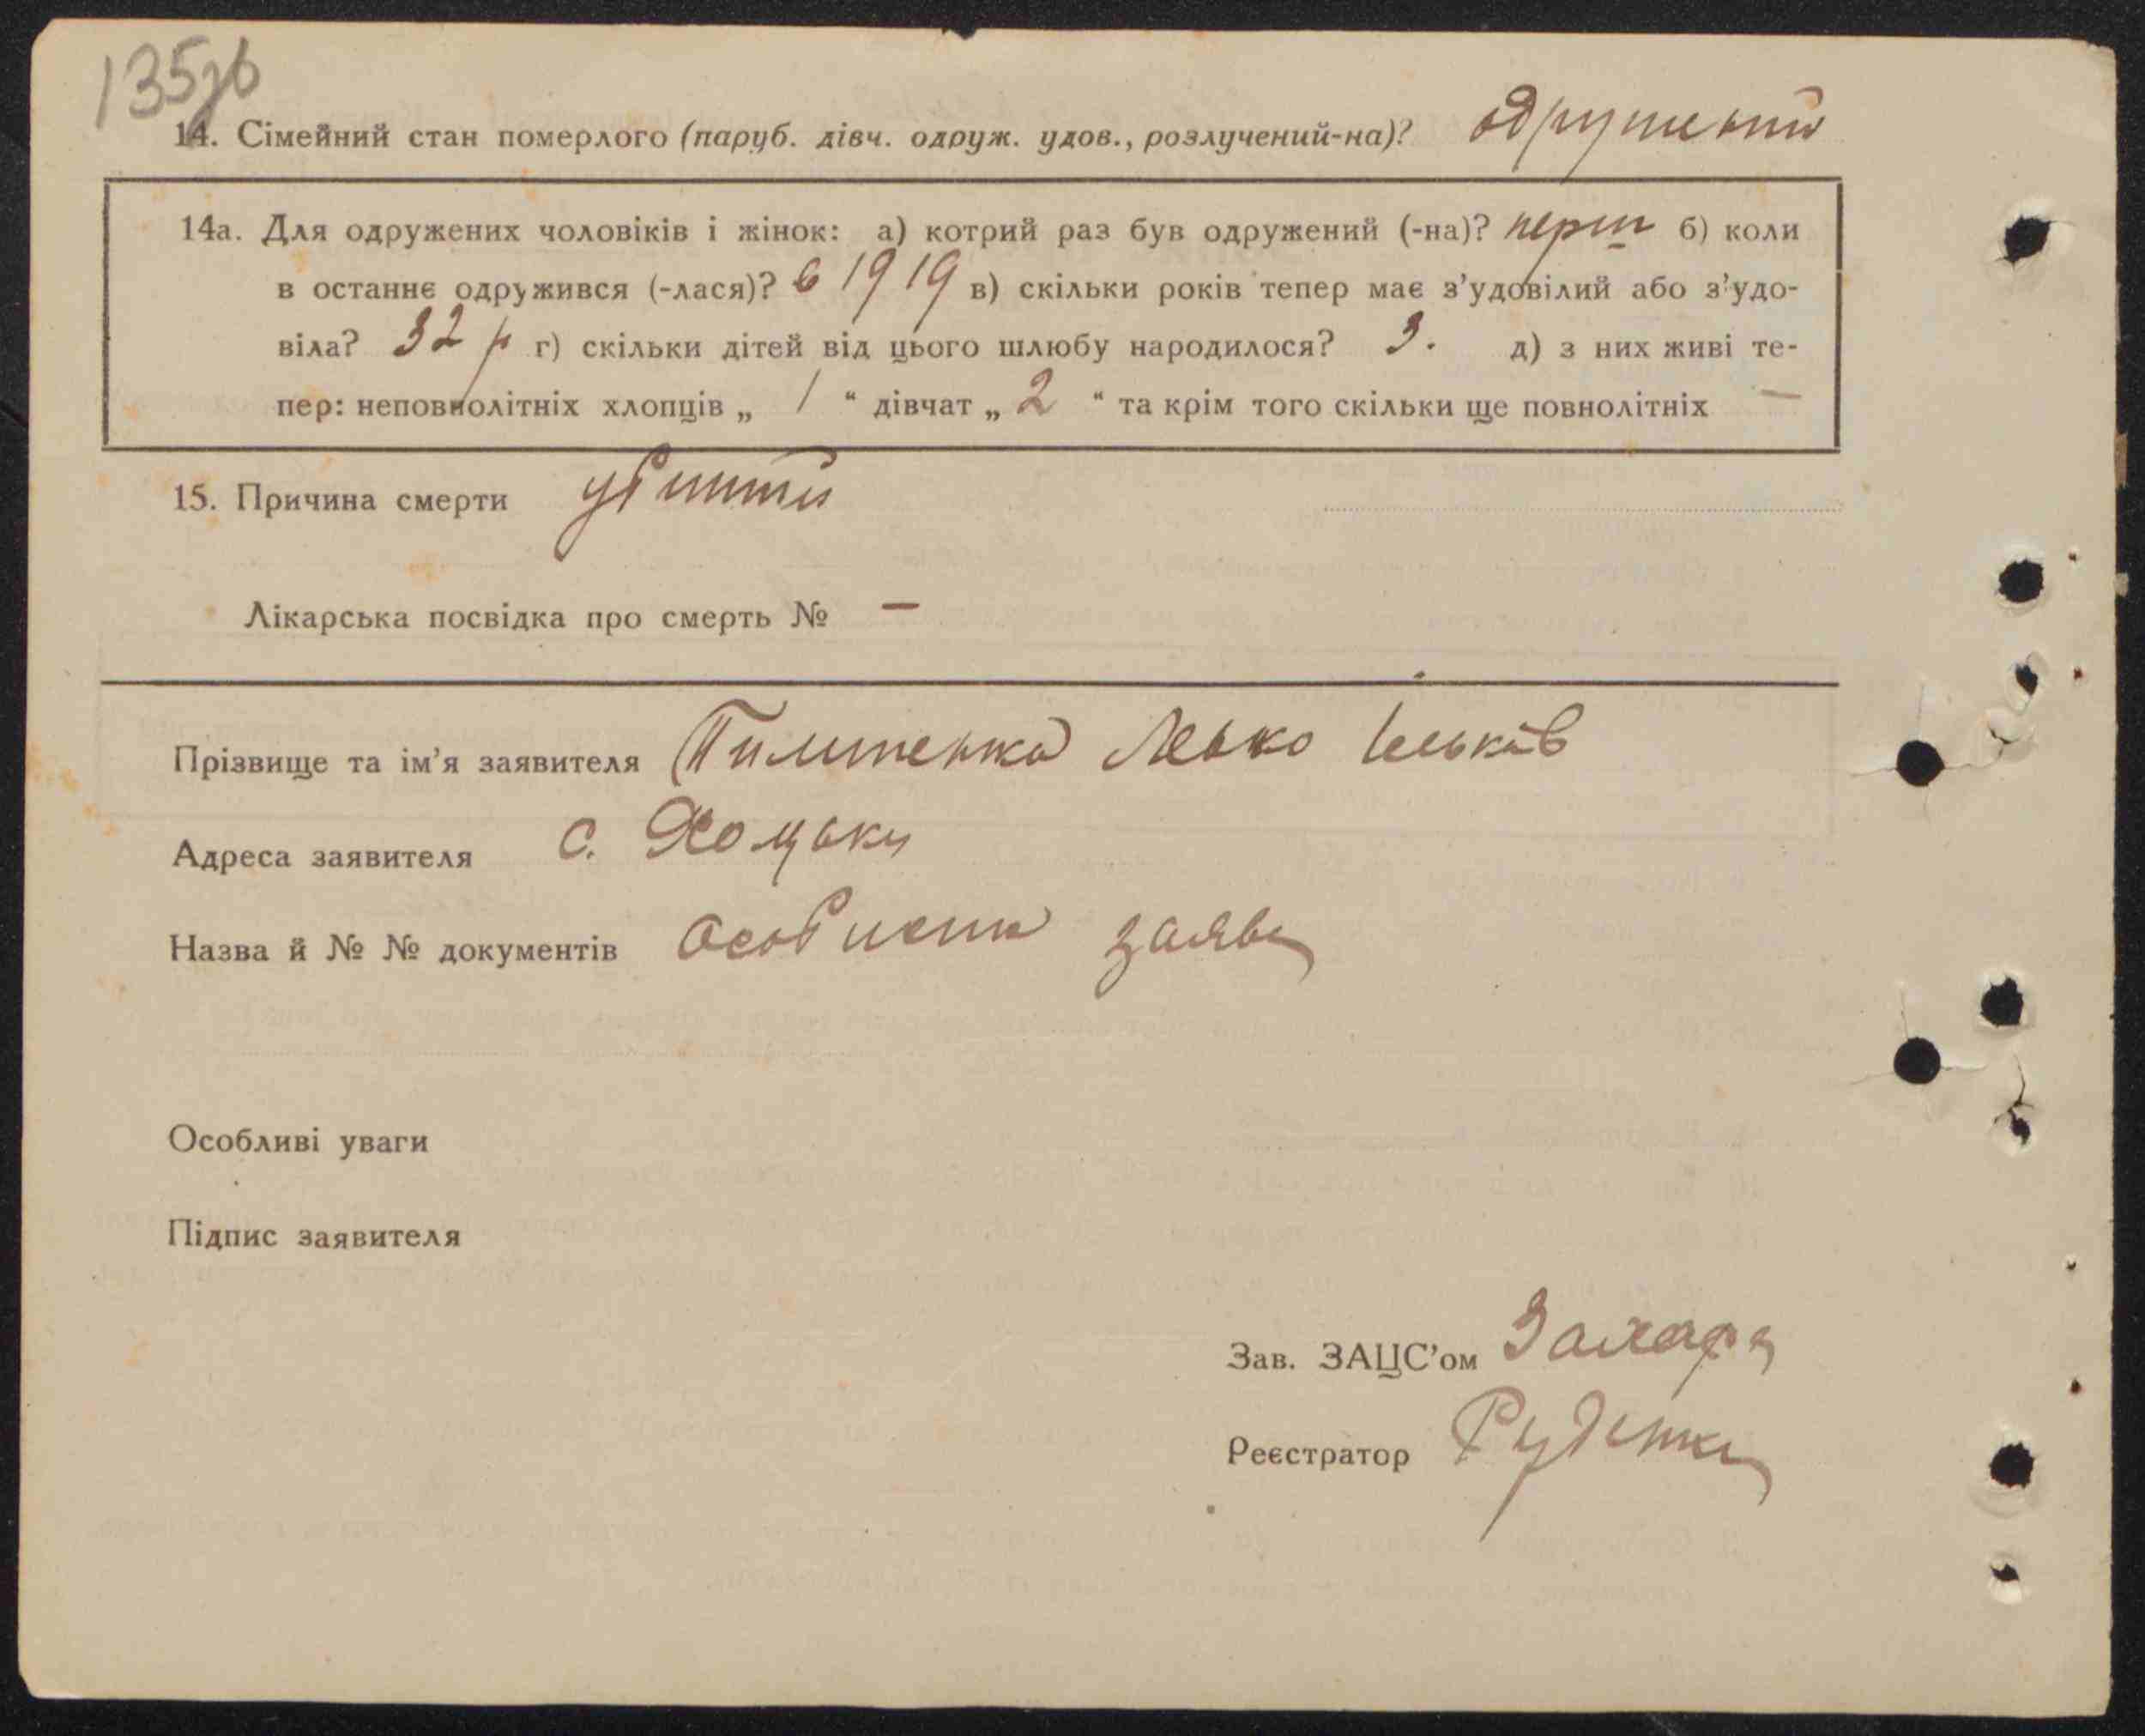 135зв
14. Сімейний стан померлого (паруб. дівч. одруж. удов., розлучений-на)? одружений
14а. Для одружених чоловіків і жінок: а) котрий раз був одружений (-на)? перш б) коли
в останнє одружився (-лася)? в 1919 в) скільки років тепер має з'удовілий або з'удо-
віла? 32 р г) скільки дітей від цього шлюбу народилося? 3. д) з них живі те-
пер: неповнолітніх хлопців „ 1 “ дівчат „ 2 “ та крім того скільки ще повнолітніх —
15. Причина смерти убитий
Лікарська посвідка про смерть № —
Прізвище та ім'я заявителя Пилипенко Лько
Адреса заявителя с. Хомуьки
Назва й № № документів особиста заява
Особливі уваги
Підпис заявителя
Зав. ЗАЦС'ом Захара
Реєстратор Руденко